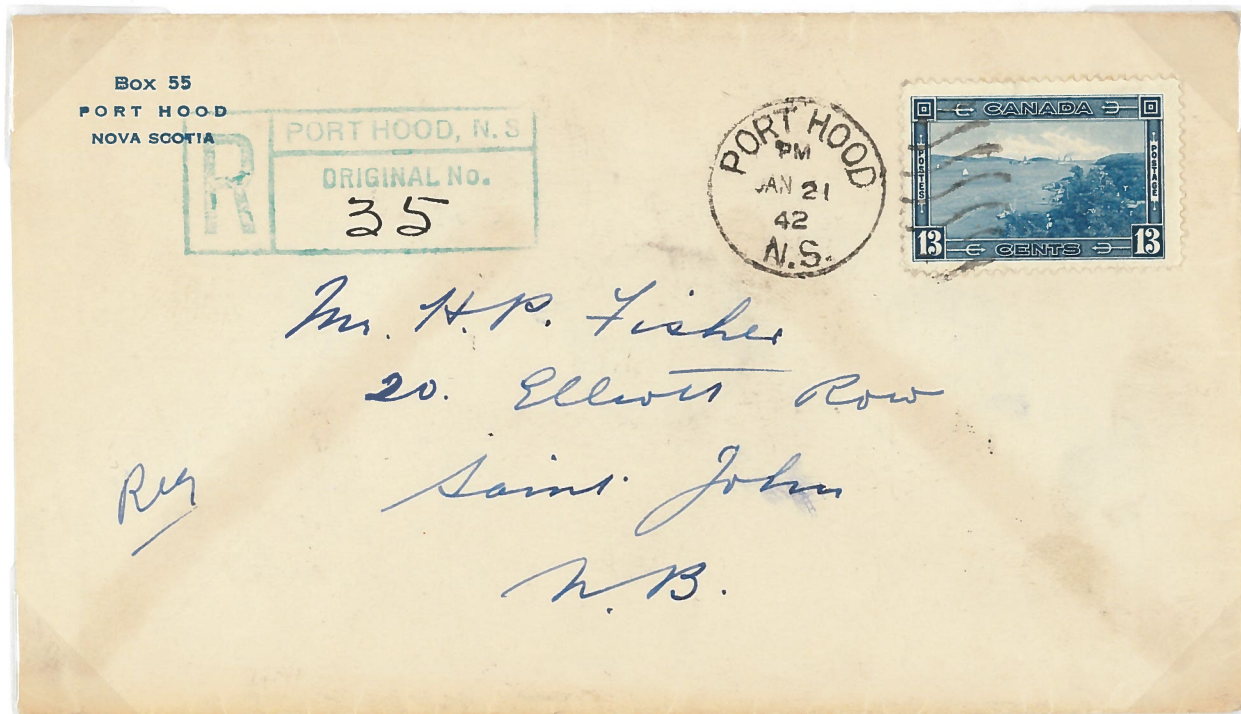 Box 55
PORT HOOD
NOVA SCOTIA
R
PORT HOOD, N.S
ORIGINAL No.
35
PORT HOOD
PM
JAN 21
42
N.S.
CANADA
POSTES
POSTAGE
13 CENTS 13
Mr. H.P. Fisher
20. Elliott Row
Saint John
N.B.
Reg